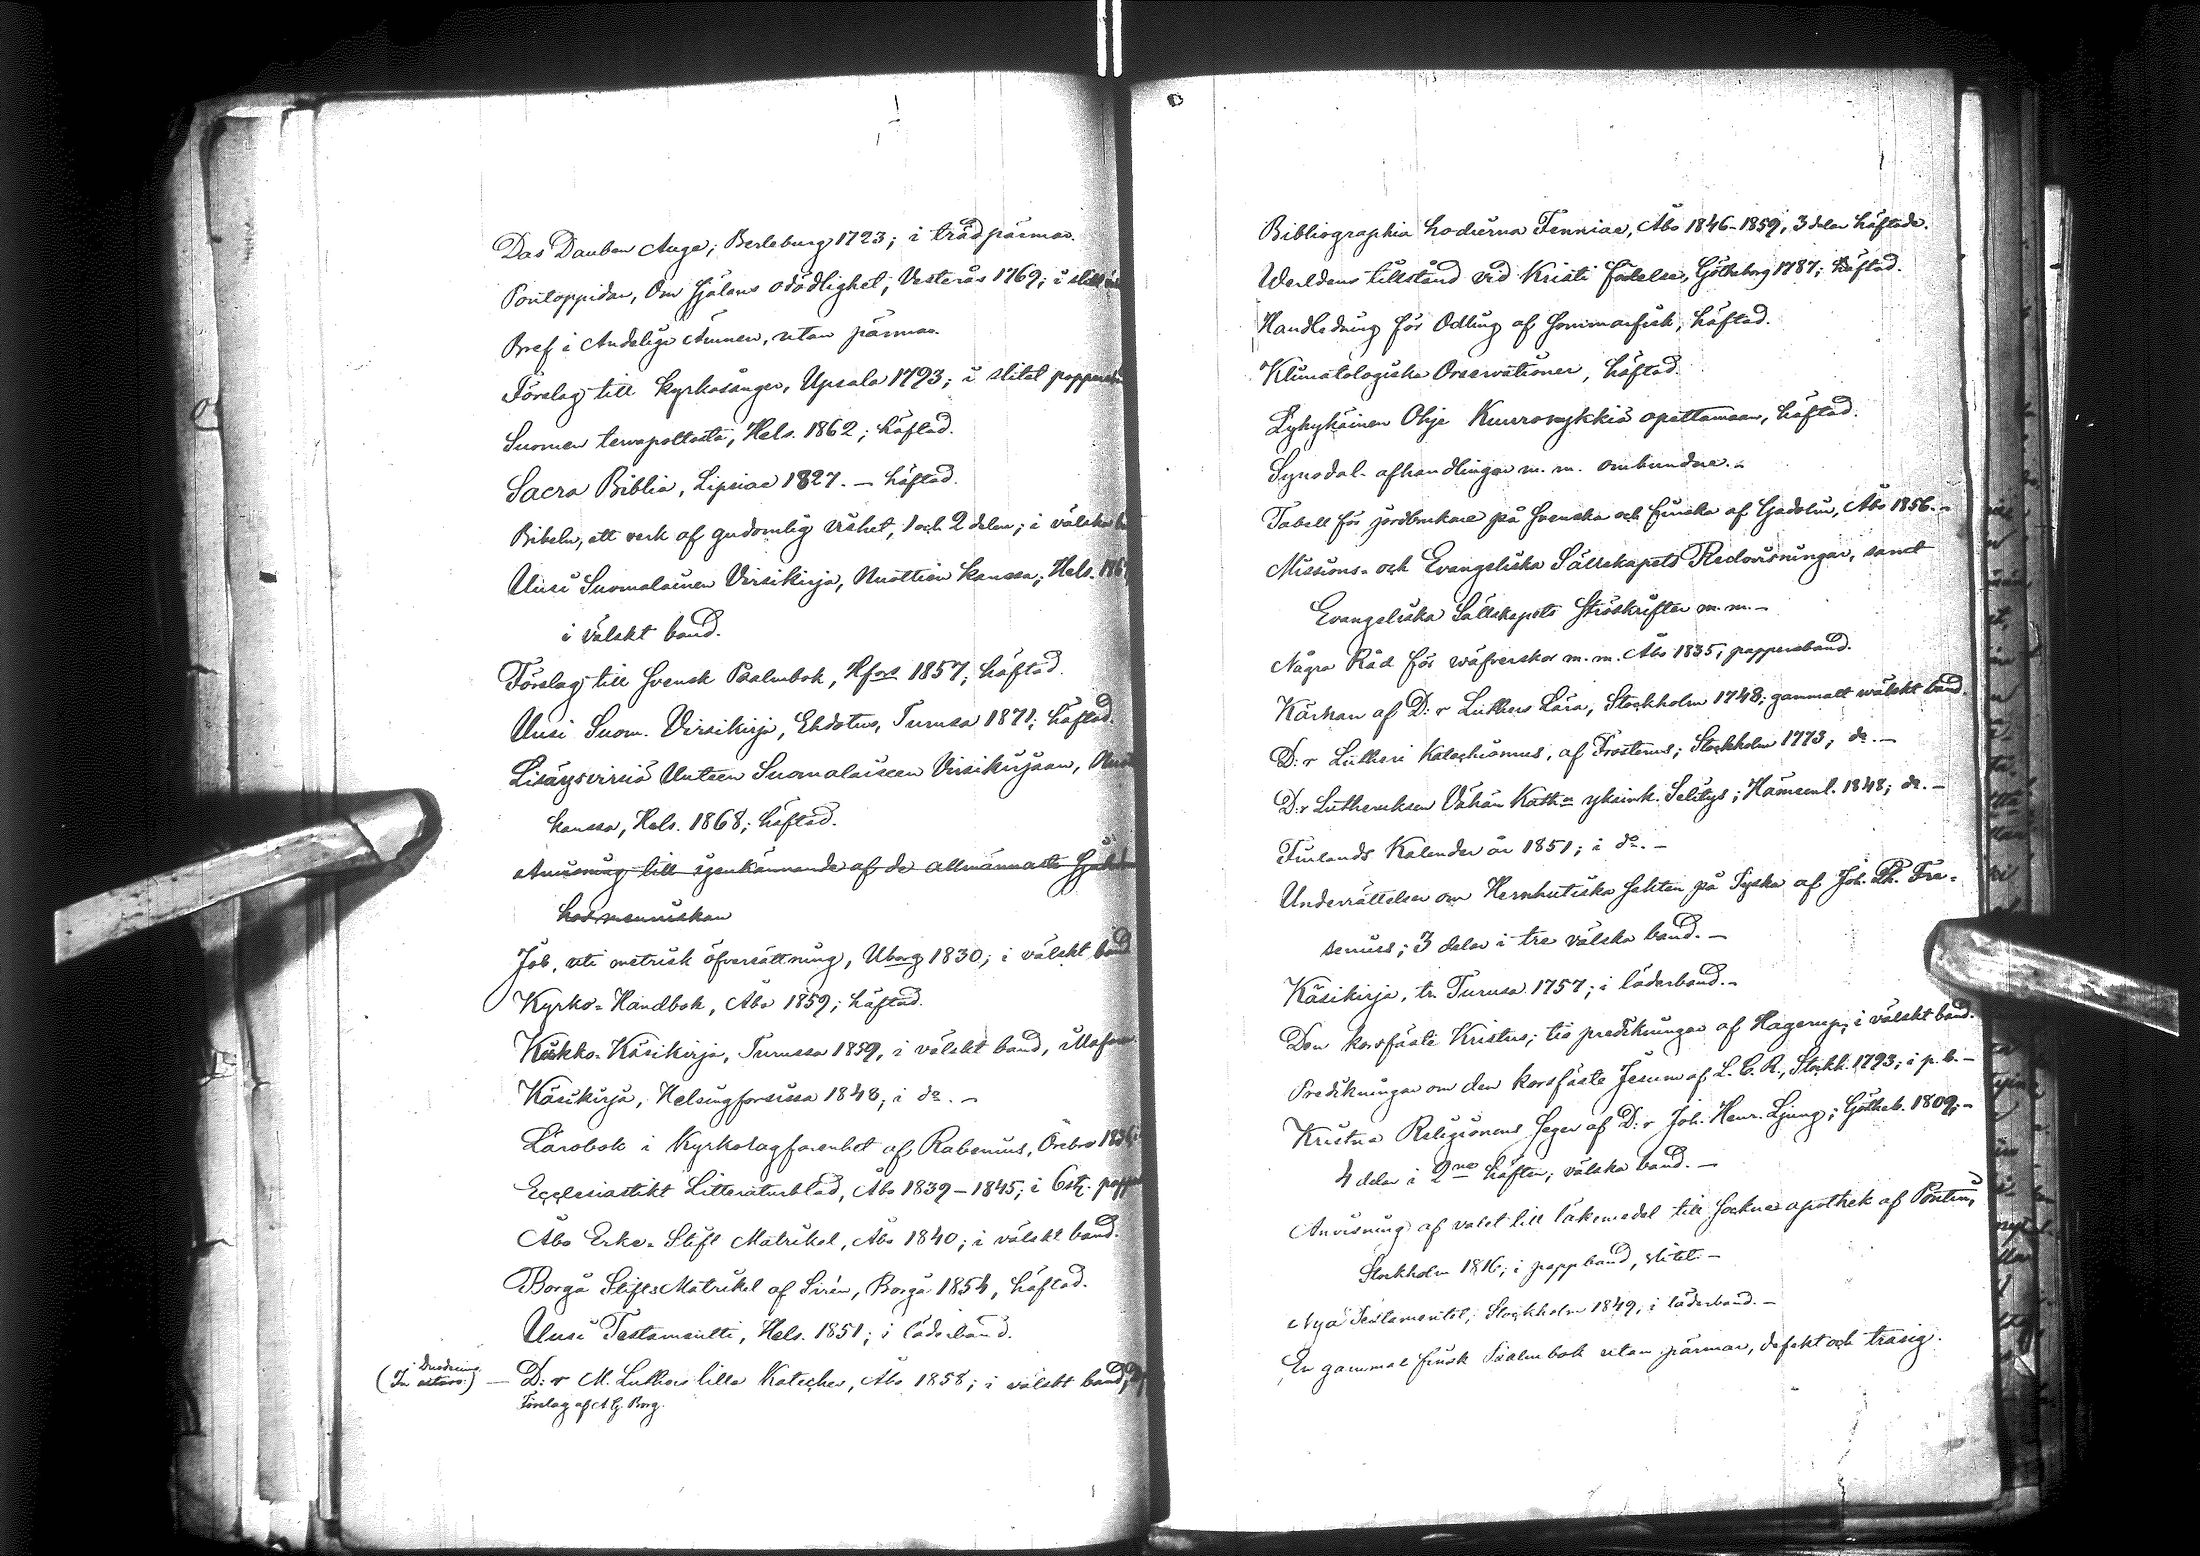 Das Dauben Auge; Berleburg 1723; i trädpärmar.
Pontoppidan, Om Själens odödlighet; Vesterås 1769; i
Bref i Andeliga Ämnen, utan pärmar.
Förslag till Kyrkosånger, Upsala 1793; i slitet
Suomen tervapoltosta, Hels. 1862; häftad.
Sacra Biblia, Lipsiae 1827. — häftad.
Bibeln, ett verk af gudomlig vishet, 1 och 2 delen; i välska
Uusi Suomalainen Virsikirja, Nuottien kanssa; Hels.
i välskt band.
Förslag till Svensk Psalmbok, Hfors 1857; häftad.
Uusi Suom. Virsikirja, Ehdotus, Turussa 1871; häftad.
Lisäysvirsiä Uuteen Suomalaiseen Virsikirjaan,
kanssa, Hels. 1868; häftad.
Anvisning till igenkännande af de allmännaste
hos menniskan
Job, uti metrisk öfversättning, Uborg 1830; i välskt band
Kyrko-Handbok, Åbo 1859; häftad.
Kirkko-Käsikirja, Turussa 1859, i välskt band,
Käsikirja, Helsingforsissa 1848; i do. —
Lärobok i Kyrkolagfarenhet af Rabenius, Örebro
Ecclesiastikt Litteraturblad, Åbo 1839–1845; i 6 st.
Åbo Erke-Stift Matrikel, Åbo 1840; i välskt band.
Borgå StiftsMatrikel af Sirén, Borgå 1854, häftad.
Uusi Testamentti, Hels. 1851; i läderband.
D:r M. Luthers lilla Kateches, Åbo 1858; i välskt band,
Förslag af A. G. Borg.
Bibliographia hodierna Fenniae, Åbo 1846–1859, 3 delar häftade.
Werldens tillstånd vid Kristi födelse, Götheborg 1787; häftad.
Handledning för Odling af Sommarfisk, häftad.
Klimatologiska Observationer, häftad.
Lyhykäinen Ohje Kuuromykkiä opettamaan, häftad.
Synodal-afhandlingar m. m. ombundne. —
Tabell för jordbrukare på Svenska och finska af Gadolin, Åbo 1856. —
Missions- och Evangeliska Sällskapets Redovisningar, samt
Evangeliska Sällskapets Ströskrifter m. m. —
Några Råd för wäfverskor m. m. Åbo 1835; pappersband.
Kärnan af D:r Luthers Lära, Stockholm 1748; gammalt wälskt band.
D:r Lutheri Katechismus, af Frosterus; Stockholm 1773; do. —
D:r Lutheruksen Vähän Kath:n yksink. Selitys; Hämeenl. 1848; do. —
Finlands Kalender år 1851; i do. —
Underrättelser om Hernhutiska Sekten på Tyska af Joh. Ph. Fre-
senius; 3 delar i tre välska band. —
Käsikirja, tr. Turusa 1757; i läderband. —
Den korsfäste Kristus; tio predikningar af Hagerup; i välskt band.
Predikningar om den korsfäste Jesum af L. C. R., Stockh. 1793; i p. b. —
Kristna Religionens Seger af D:r Joh. Henr. Ljung; Götheb. 1809; —
4 delar i 2ne häften; välska band. —
Anvisning af valet till läkemedel till Socknes apothek af Pontin,
Stockholm 1816; i pappband, slitet. —
Nya Testamentet; Stockholm 1849, i läderband. —
En gammal finsk Psalmbok utan pärmar, defekt och trasig.